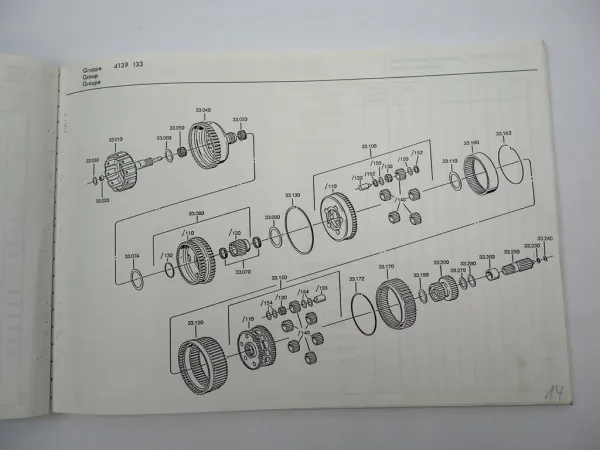 Gruppe 4139 133
Group
Groupe
33.040
33.010
33.050
33.060
33.050
33.030
33.020
33.100
/110
/120
/152
/150
/130
/130
/152
/140
33.110
33.160
33.162
33.130
33.080
/110
/120
33.090
33.074
/130
33.070
33.150
/154
/130
/154
/120
/110
/140
33.120
33.172
33.170
33.190
33.200
33.270
33.280
33.260
33.250
33.230
33.240
14